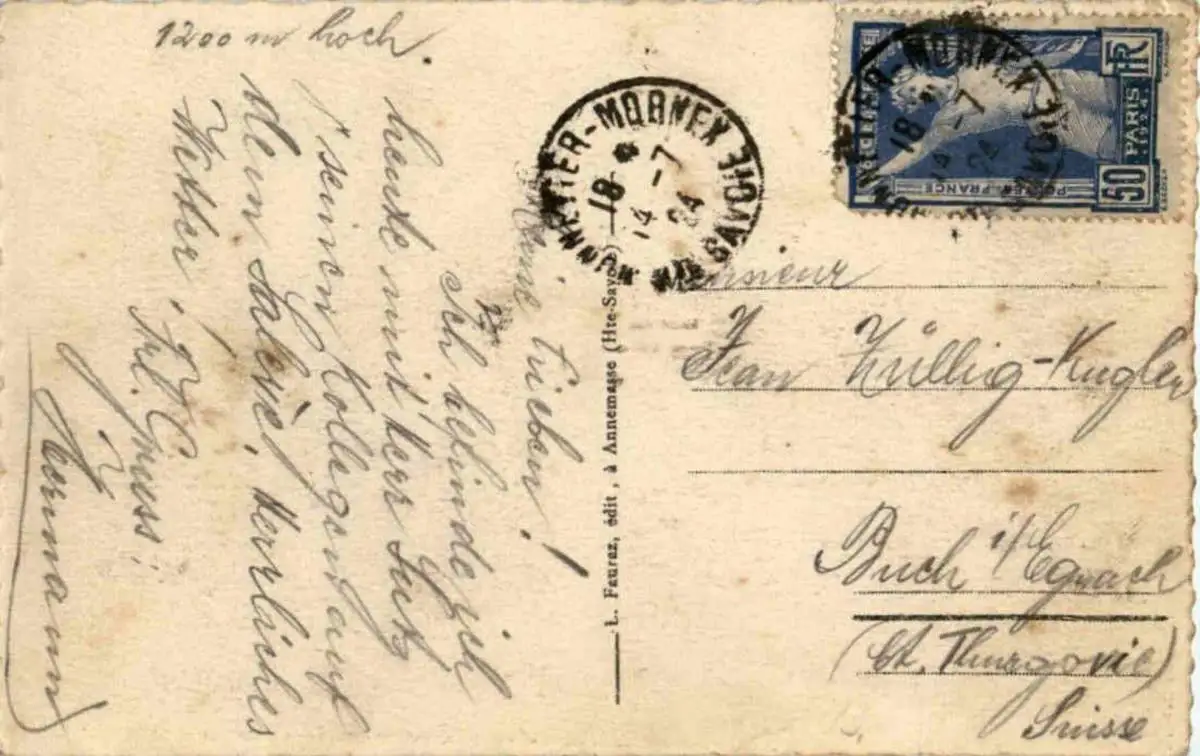 1200 m hoch.
Meine Lieben!
Ich befinde mich
heute mit Herr Lutz
& seinen Kollegen auf
dem Salève, herrliches
Wetter. Frl.
Gruss:
Hermann
L. Faurez, édit, à Annemasse (Hte-Savoie)
MONNETIER-MORNEX
18 *
14 -7
24
HTE SAVOIE
RF
PARIS
1924
50
POSTES-FRANCE
MONNETIER-MORNEX
18 *
14 -7
24
HTE SAVOIE
Monsieur
Jean Züllig-Kugler
Buch i/Egnach
(Ct. Thurgovie)
Suisse